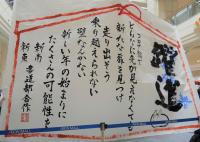 躍進
どんなに先が見えなくても
新たな扉を見つけ
走り出そう
乗り越えられない
壁なんかない
新しい年の始まりに
たくさんの可能性を
新南
新東 書道部合作